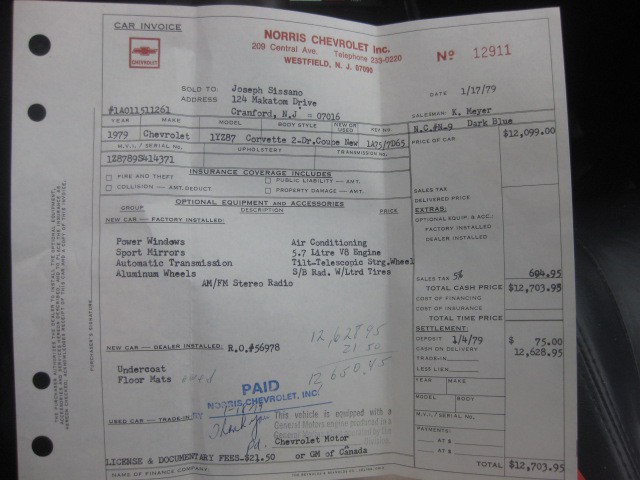 CAR INVOICE
NORRIS CHEVROLET Inc.
209 Central Ave. Telephone 233-0220
WESTFIELD, N. J. 07090
No 12911
CHEVROLET
SOLD TO Joseph Sissano
ADDRESS 124 Makatom Drive
Cranford, N.J - 07016
DATE 1/17/79
#1A011511261
SALESMAN: E. Meyer
YEAR MAKE MODEL BODY STYLE NEW OR USED KEY NO.
N.C.#M-9 Dark Blue
1979 Chevrolet 1YZ87 Corvette 2-Dr.Coube New 1A75/7D65
PRICE OF CAR $12,099.00
M.V.I./ SERIAL NO. UPHOLSTERY TRANSMISSION NO.
1Z8789S414371
INSURANCE COVERAGE INCLUDES
FIRE AND THEFT PUBLIC LIABILITY — AMT.
COLLISION — AMT. DEDUCT. PROPERTY DAMAGE — AMT.
SALES TAX
DELIVERED PRICE
OPTIONAL EQUIPMENT AND ACCESSORIES
GROUP DESCRIPTION PRICE
EXTRAS:
OPTIONAL EQUIP. & ACC.:
FACTORY INSTALLED
DEALER INSTALLED
NEW CAR — FACTORY INSTALLED:
Power Windows Air Conditioning
Sport Mirrors 5.7 Litre V8 Engine
Automatic Transmission Tilt-Telescopic Strg.Wheel
Aluminum Wheels S/B Rad. W/Ltrd Tires
AM/FM Stereo Radio
SALES TAX 5% 694.95
TOTAL CASH PRICE $12,703.95
COST OF FINANCING
COST OF INSURANCE
TOTAL TIME PRICE
SETTLEMENT:
DEPOSIT 1/4/79 $ 75.00
CASH ON DELIVERY 12,628.95
TRADE-IN
LESS LIEN
YEAR MAKE
MODEL BODY
M.V.I./ SERIAL NO.
PAYMENTS:
AT $
AT $
TOTAL $12,703.95
12,628.95
21.50
12,650.45
NEW CAR — DEALER INSTALLED: R.O.#56978
Undercoat
Floor Mats
PAID
NORRIS CHEVROLET, INC.
USED CAR — TRADE-IN: BY
Thank you
Pd.
This vehicle is equipped with a
General Motors engine produced in a
Chevrolet Motor
or GM of Canada
LICENSE & DOCUMENTARY FEES-$21.50
NAME OF FINANCE COMPANY:
PURCHASER'S SIGNATURE